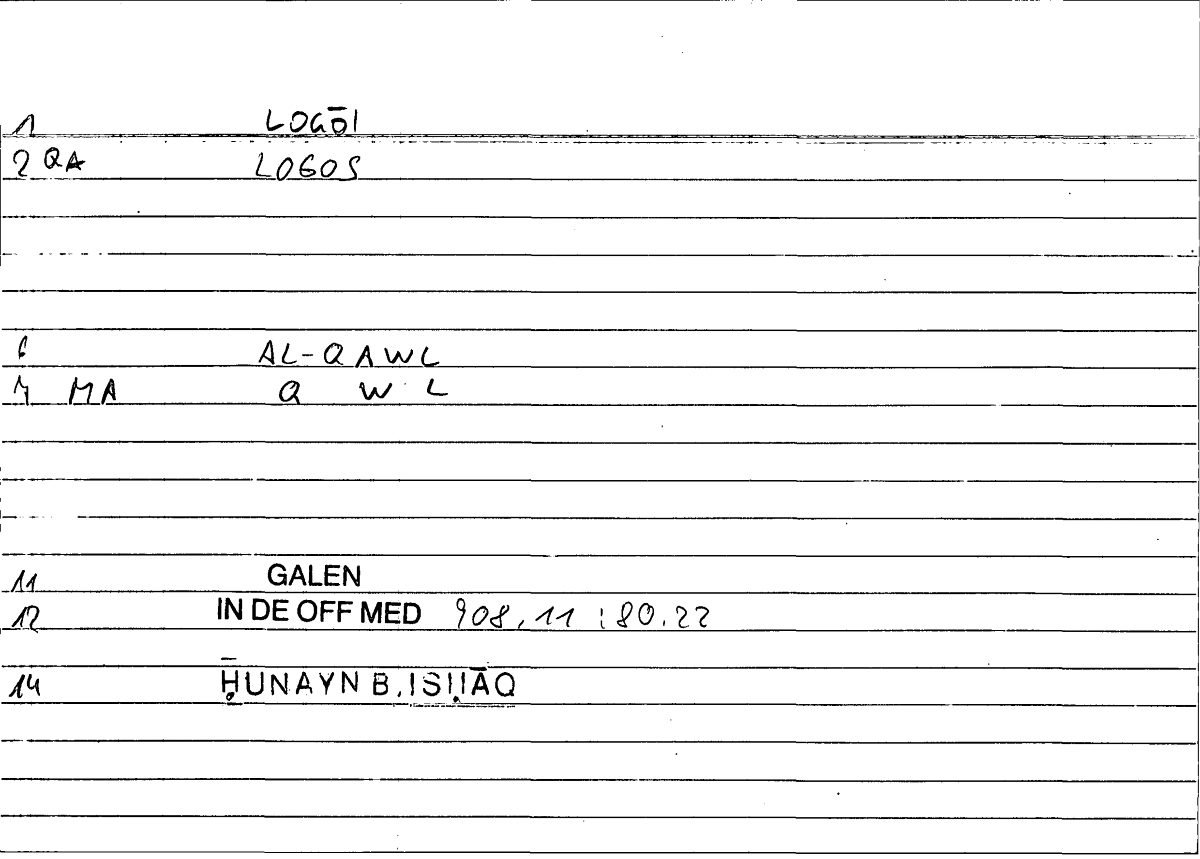 1 LOGŌI
2 QA LOGOS
6 AL-QAWL
7 MA Q W L
11 GALEN
12 IN DE OFF MED 908,11 : 80.22
14 ḤUNAYN B. ISḤĀQ